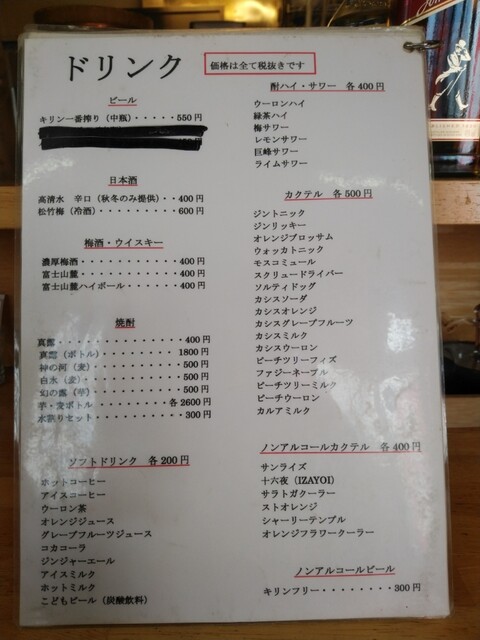 ドリンク
価格は全て税抜きです
ビール
キリン一番搾り(中瓶)・・・・・・550円
日本酒
高清水 辛口(秋冬のみ提供)・・400円
松竹梅(冷酒)・・・・・・・・・600円
梅酒・ウイスキー
濃厚梅酒・・・・・・・・・・・400円
富士山麓・・・・・・・・・・・400円
富士山麓ハイボール・・・・・・400円
焼酎
真露・・・・・・・・・・・・・・400円
真露(ボトル)・・・・・・・・・1800円
神の河(麦)・・・・・・・・・・500円
白水(麦)・・・・・・・・・・・500円
幻の露(芋)・・・・・・・・・・500円
芋・麦ボトル・・・・・・・・各2600円
水割りセット・・・・・・・・・・300円
ソフトドリンク 各200円
ホットコーヒー
アイスコーヒー
ウーロン茶
オレンジジュース
グレープフルーツジュース
コカコーラ
ジンジャーエール
アイスミルク
ホットミルク
こどもビール(炭酸飲料)
酎ハイ・サワー 各400円
ウーロンハイ
緑茶ハイ
梅サワー
レモンサワー
巨峰サワー
ライムサワー
カクテル 各500円
ジントニック
ジンリッキー
オレンジブロッサム
ウォッカトニック
モスコミュール
スクリュードライバー
ソルティドッグ
カシスソーダ
カシスオレンジ
カシスグレープフルーツ
カシスミルク
カシスウーロン
ピーチツリーフィズ
ファジーネーブル
ピーチツリーミルク
ピーチウーロン
カルアミルク
ノンアルコールカクテル 各400円
サンライズ
十六夜(IZAYOI)
サラトガクーラー
ストオレンジ
シャーリーテンプル
オレンジフラワークーラー
ノンアルコールビール
キリンフリー・・・・・・・・・300円